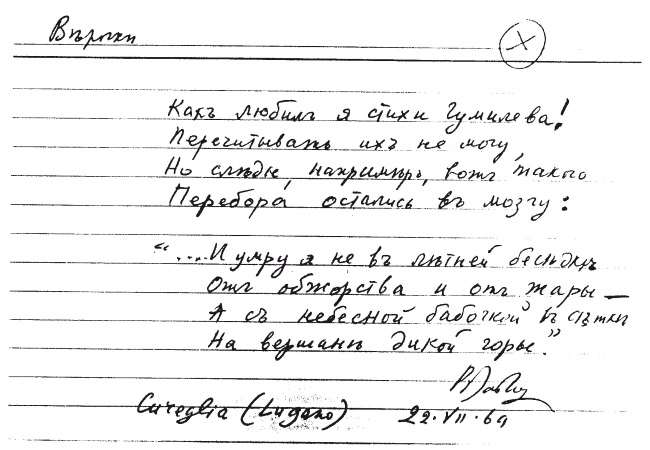 Вѣрочки
X
Какъ любилъ я стихи Гумилева!
Перечитывать ихъ не могу,
Но слѣды, напримѣръ, вотъ такого
Перебора остались въ мозгу:
“....И умру я не въ лѣтней бесѣдкѣ
Отъ обжорства и отъ жары —
А съ небесной бабочкой въ сѣткѣ
На вершинѣ дикой горы.”
Cureglia (Lugano)
22.VII.69